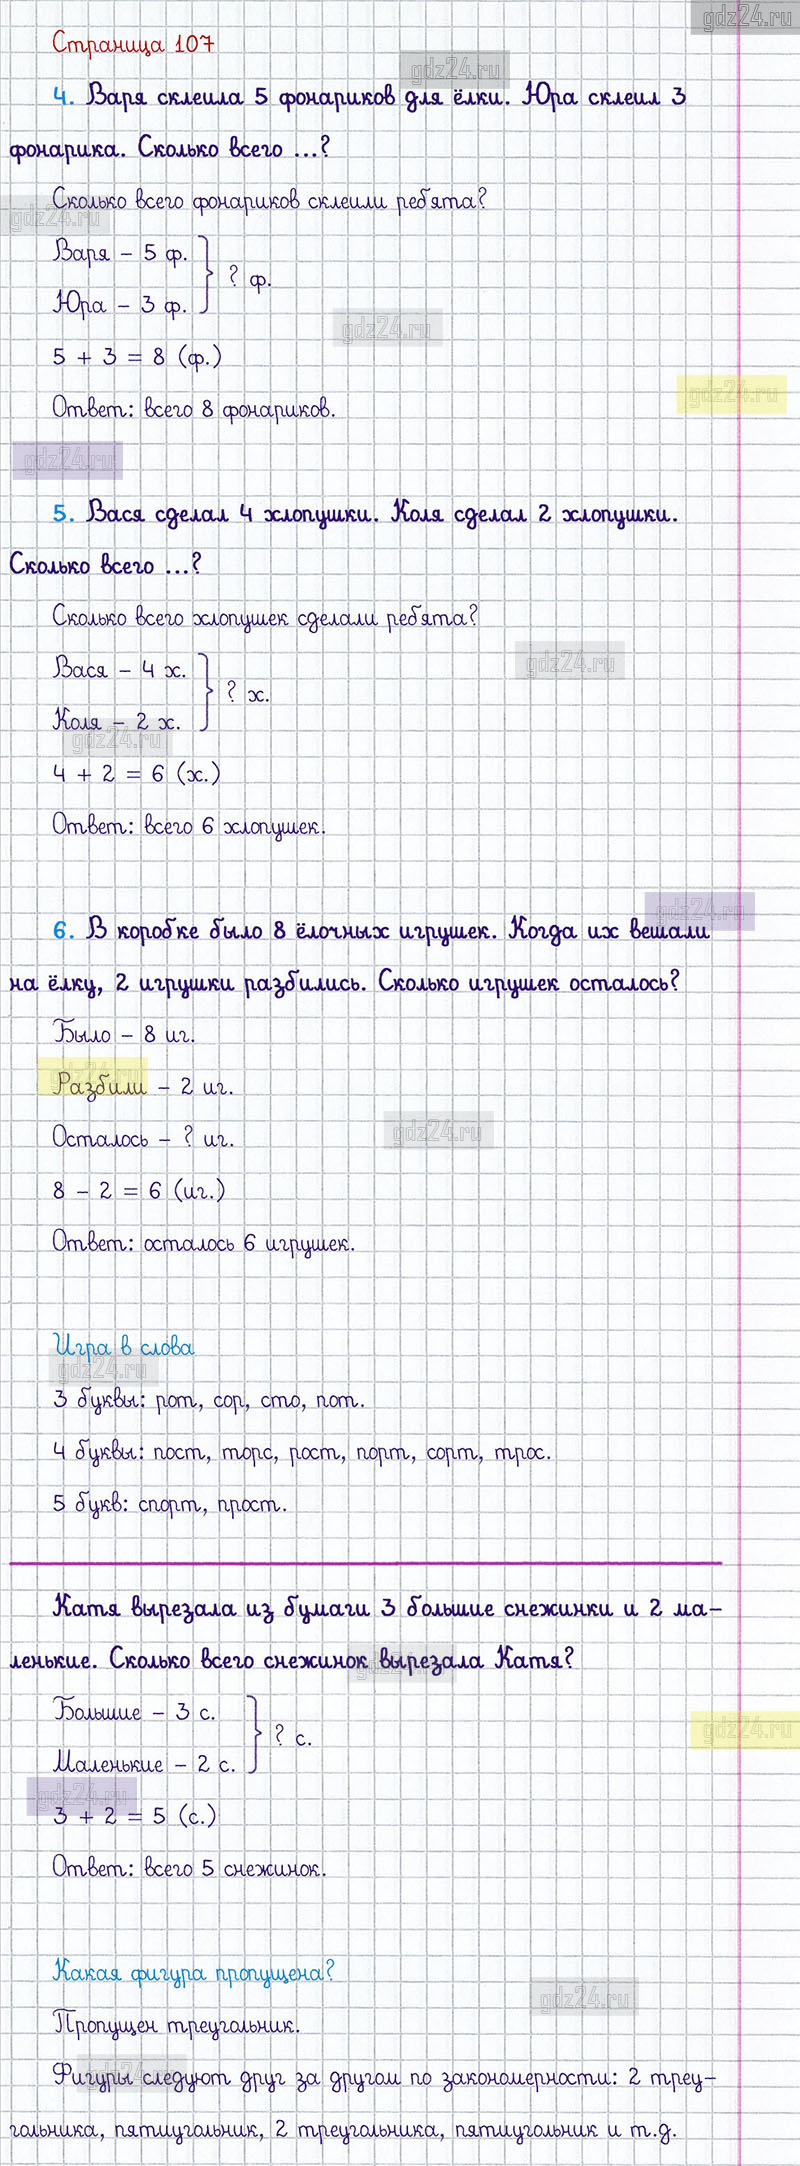 gdz24.ru
Страница 107
gdz24.ru
4. Варя склеила 5 фонариков для ёлки. Юра склеил 3
фонарика. Сколько всего ...?
Сколько всего фонариков склеили ребята?
gdz24.ru
Варя – 5 ф.
? ф.
Юра – 3 ф.
gdz24.ru
5 + 3 = 8 (ф.)
gdz24.ru
Ответ: всего 8 фонариков.
gdz24.ru
5. Вася сделал 4 хлопушки. Коля сделал 2 хлопушки.
Сколько всего ...?
Сколько всего хлопушек сделали ребята?
gdz24.ru
Вася – 4 х.
? х.
Коля – 2 х.
gdz24.ru
4 + 2 = 6 (х.)
Ответ: всего 6 хлопушек.
gdz24.ru
6. В коробке было 8 ёлочных игрушек. Когда их вешали
на ёлку, 2 игрушки разбились. Сколько игрушек осталось?
Было – 8 иг.
gdz24.ru
Разбили – 2 иг.
gdz24.ru
Осталось – ? иг.
8 – 2 = 6 (иг.)
Ответ: осталось 6 игрушек.
Игра в слова
gdz24.ru
3 буквы: рот, сор, сто, пот.
4 буквы: пост, торс, рост, порт, сорт, трос.
5 букв: спорт, прост.
Катя вырезала из бумаги 3 большие снежинки и 2 ма-
ленькие. Сколько всего снежинок вырезала Катя?
gdz24.ru
Большие – 3 с.
? с.
gdz24.ru
Маленькие – 2 с.
gdz24.ru
3 + 2 = 5 (с.)
Ответ: всего 5 снежинок.
Какая фигура пропущена?
gdz24.ru
Пропущен треугольник.
gdz24.ru
Фигуры следуют друг за другом по закономерности: 2 треу-
гольника, пятиугольник, 2 треугольника, пятиугольник и т.д.